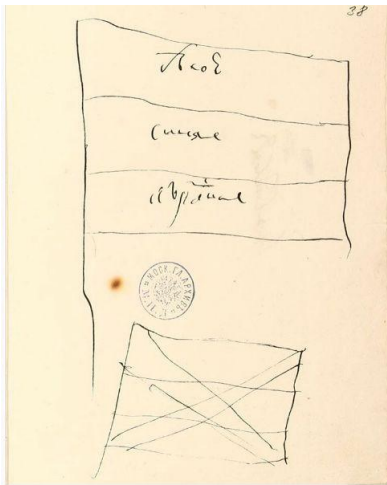 38
бѣлое
синее
красное
МОСК. ГЛ. АРХИВЪ М. И. Д.